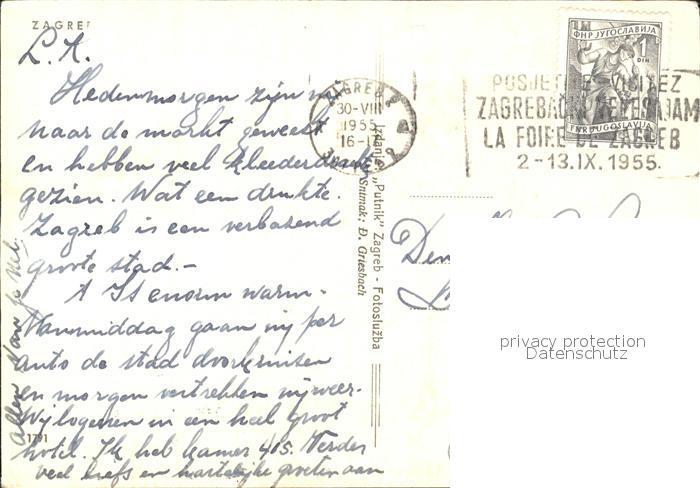 ZAGREB
L. A.
Hedenmorgen zijn wij
naar de markt geweest
en hebben veel kleederdracht
gezien. Wat een drukte.
Zagreb is een verbazend
groote stad.-
't Is enorm warm.
Vanmiddag gaan wij per
auto de stad doorkruisen
en morgen vertrekken wij weer.
Wij logeeren in een heel groot
hotel. Ik heb kamer 405. Verder
veel liefs en hartelijke groeten aan
Allen van je Nel
1791
Izdanje „Putnik" Zagreb - Fotoslužba
Snimak: Đ. Griesbach
ZAGREB 2
30-VIII
1955
16-17
POSJETITE-VISITEZ
ZAGREBAČKI VELESAJAM
LA FOIRE DE ZAGREB
2-13.IX.1955.
ФНР ЈУГОСЛАВИЈА
1
DIN
FNR JUGOSLAVIJA
Den
privacy protection
Datenschutz